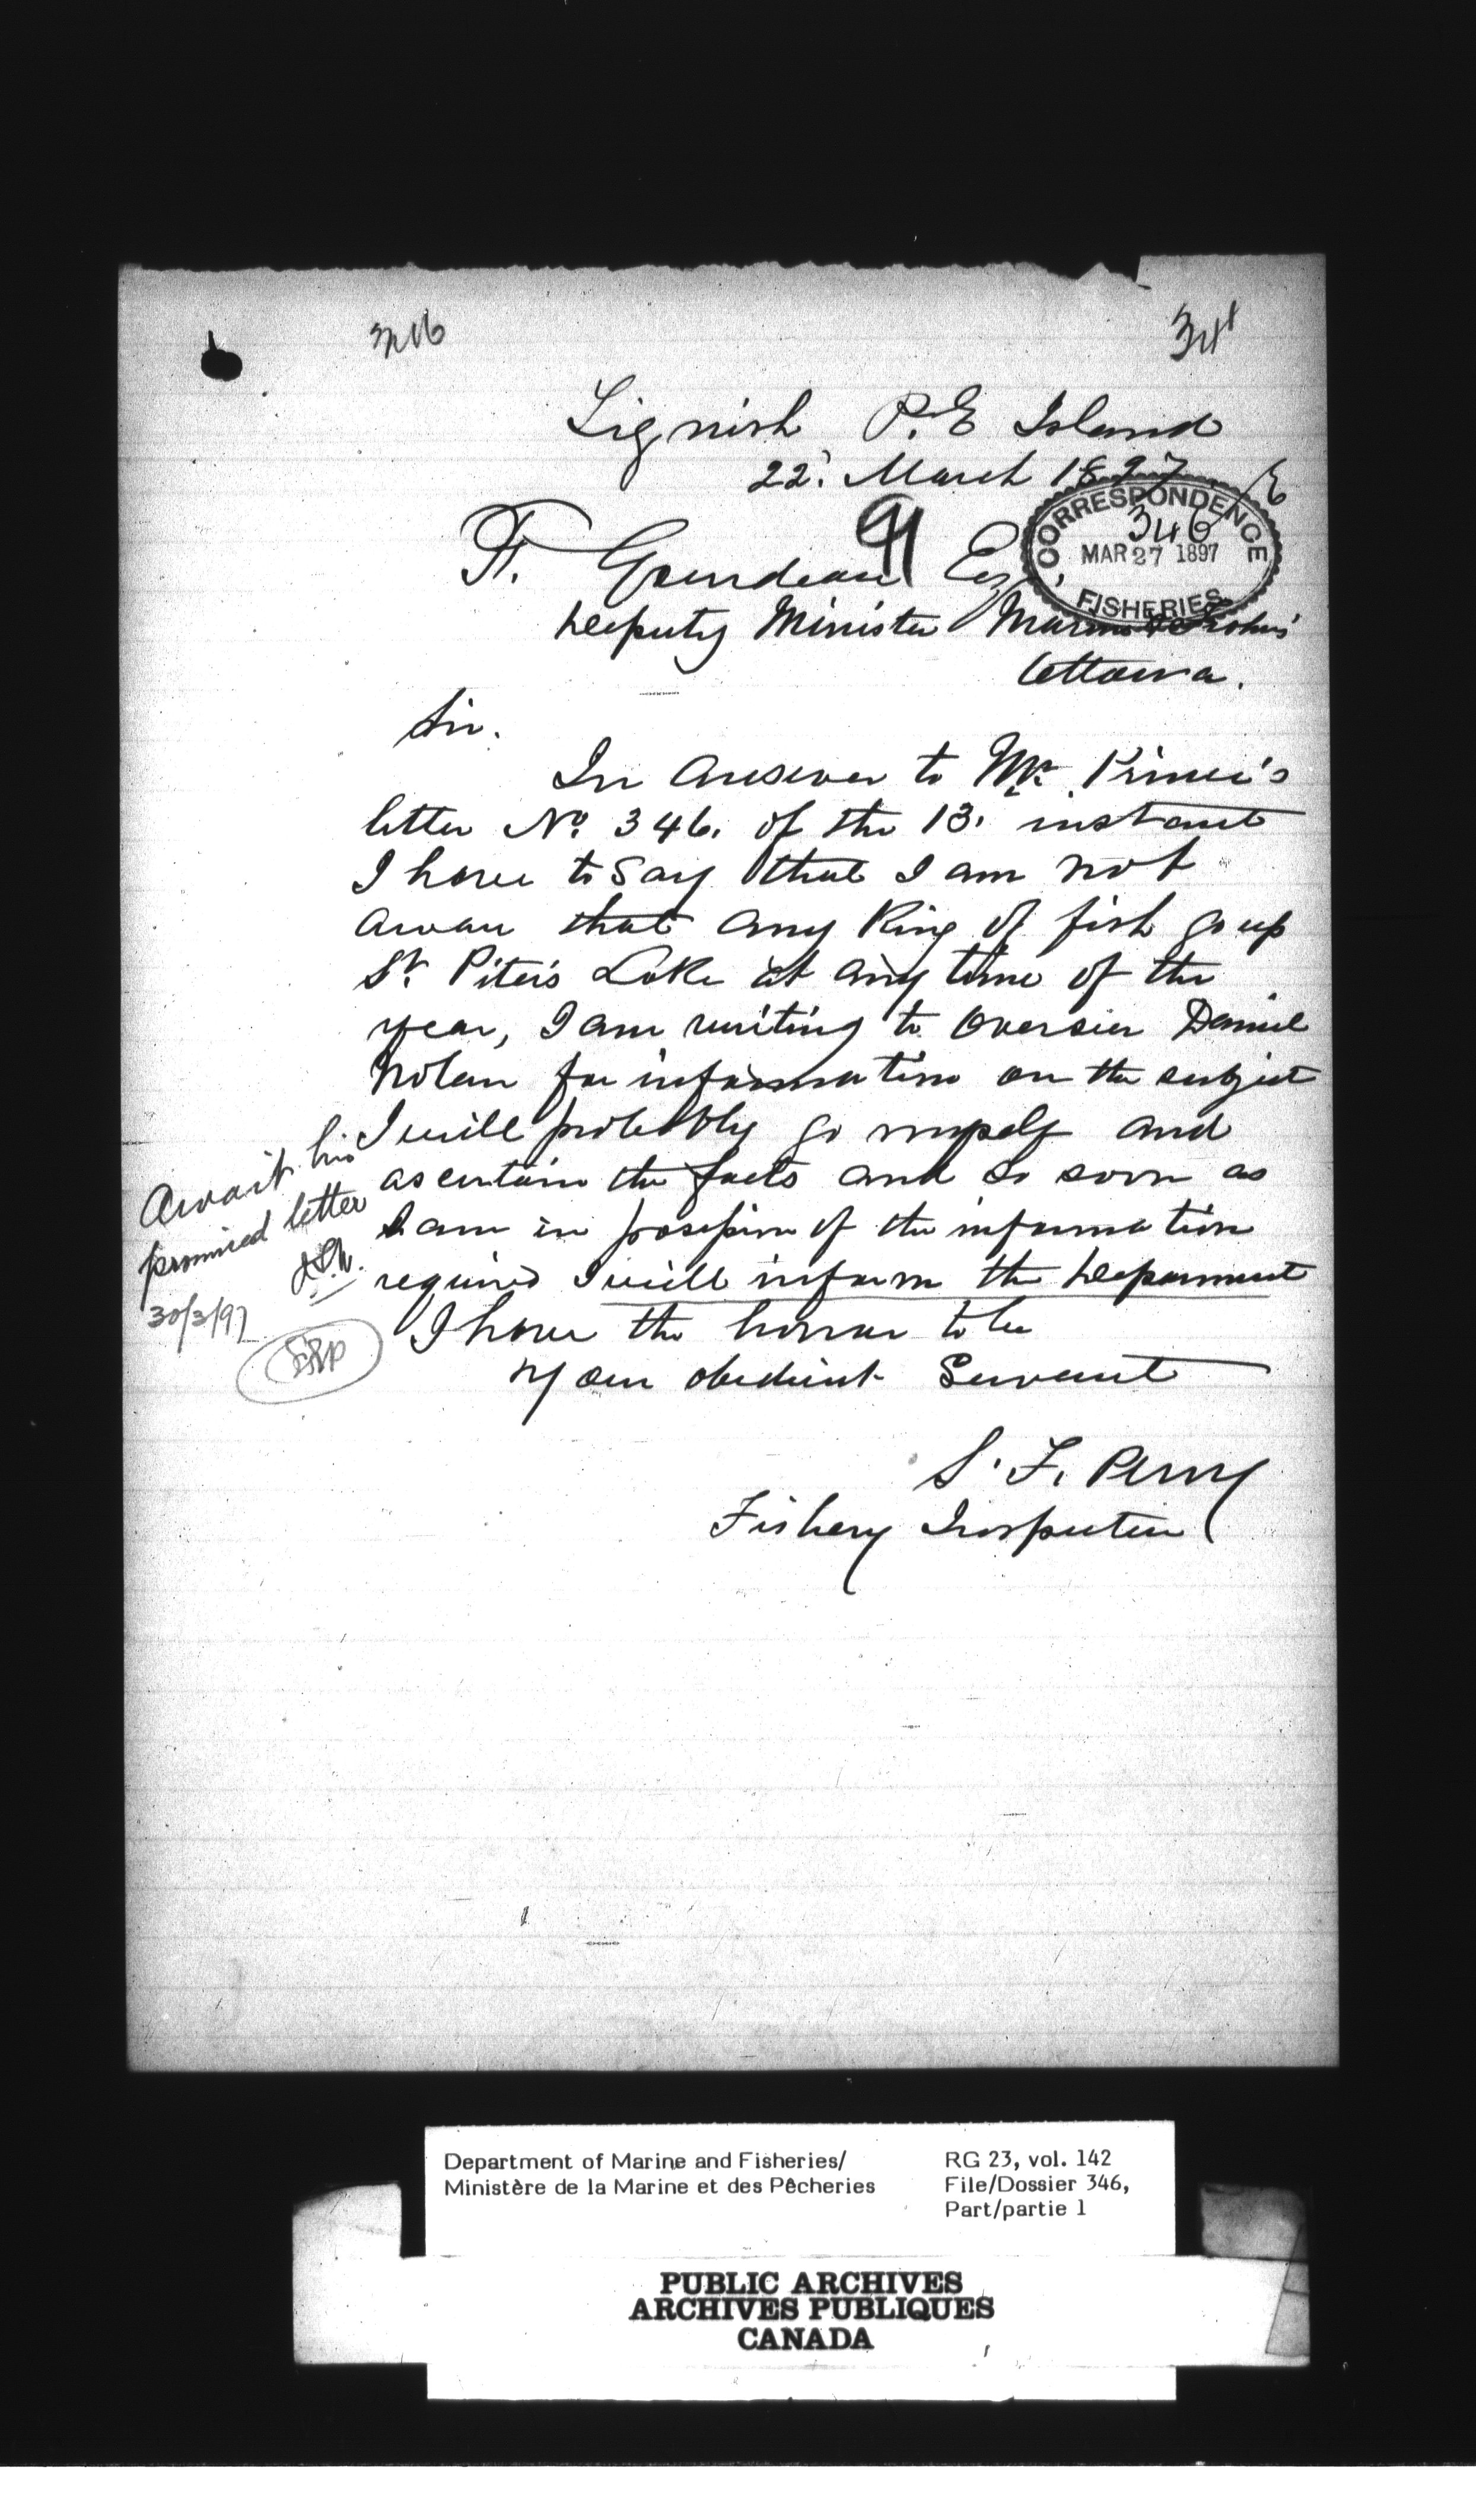 346
Tignish P. E Island
22. March 1897
91
CORRESPONDENCE
346
MAR 27 1897
FISHERIES
F. Gourdeau Esq.
Deputy Minister Marine & Fisheries
Ottawa.
Sir.
In answer to Mr. Prince's
letter No. 346. of the 13. instant
I have to say that I am not
aware that any King of fish go up
St. Peter's Lake at any time of the
year, I am writing to Overseer Daniel
Nolan for information on the subject
I will probably go myself and
ascertain the facts and so soon as
I am in possession of the information
required I will inform the Department
I have the honor to be
your obedient Servant
S. F. Perry
Fishery Inspector
Await his
promised letter
30/3/97
EEP
Department of Marine and Fisheries/
Ministère de la Marine et des Pêcheries
RG 23, vol. 142
File/Dossier 346,
Part/partie 1
PUBLIC ARCHIVES
ARCHIVES PUBLIQUES
CANADA